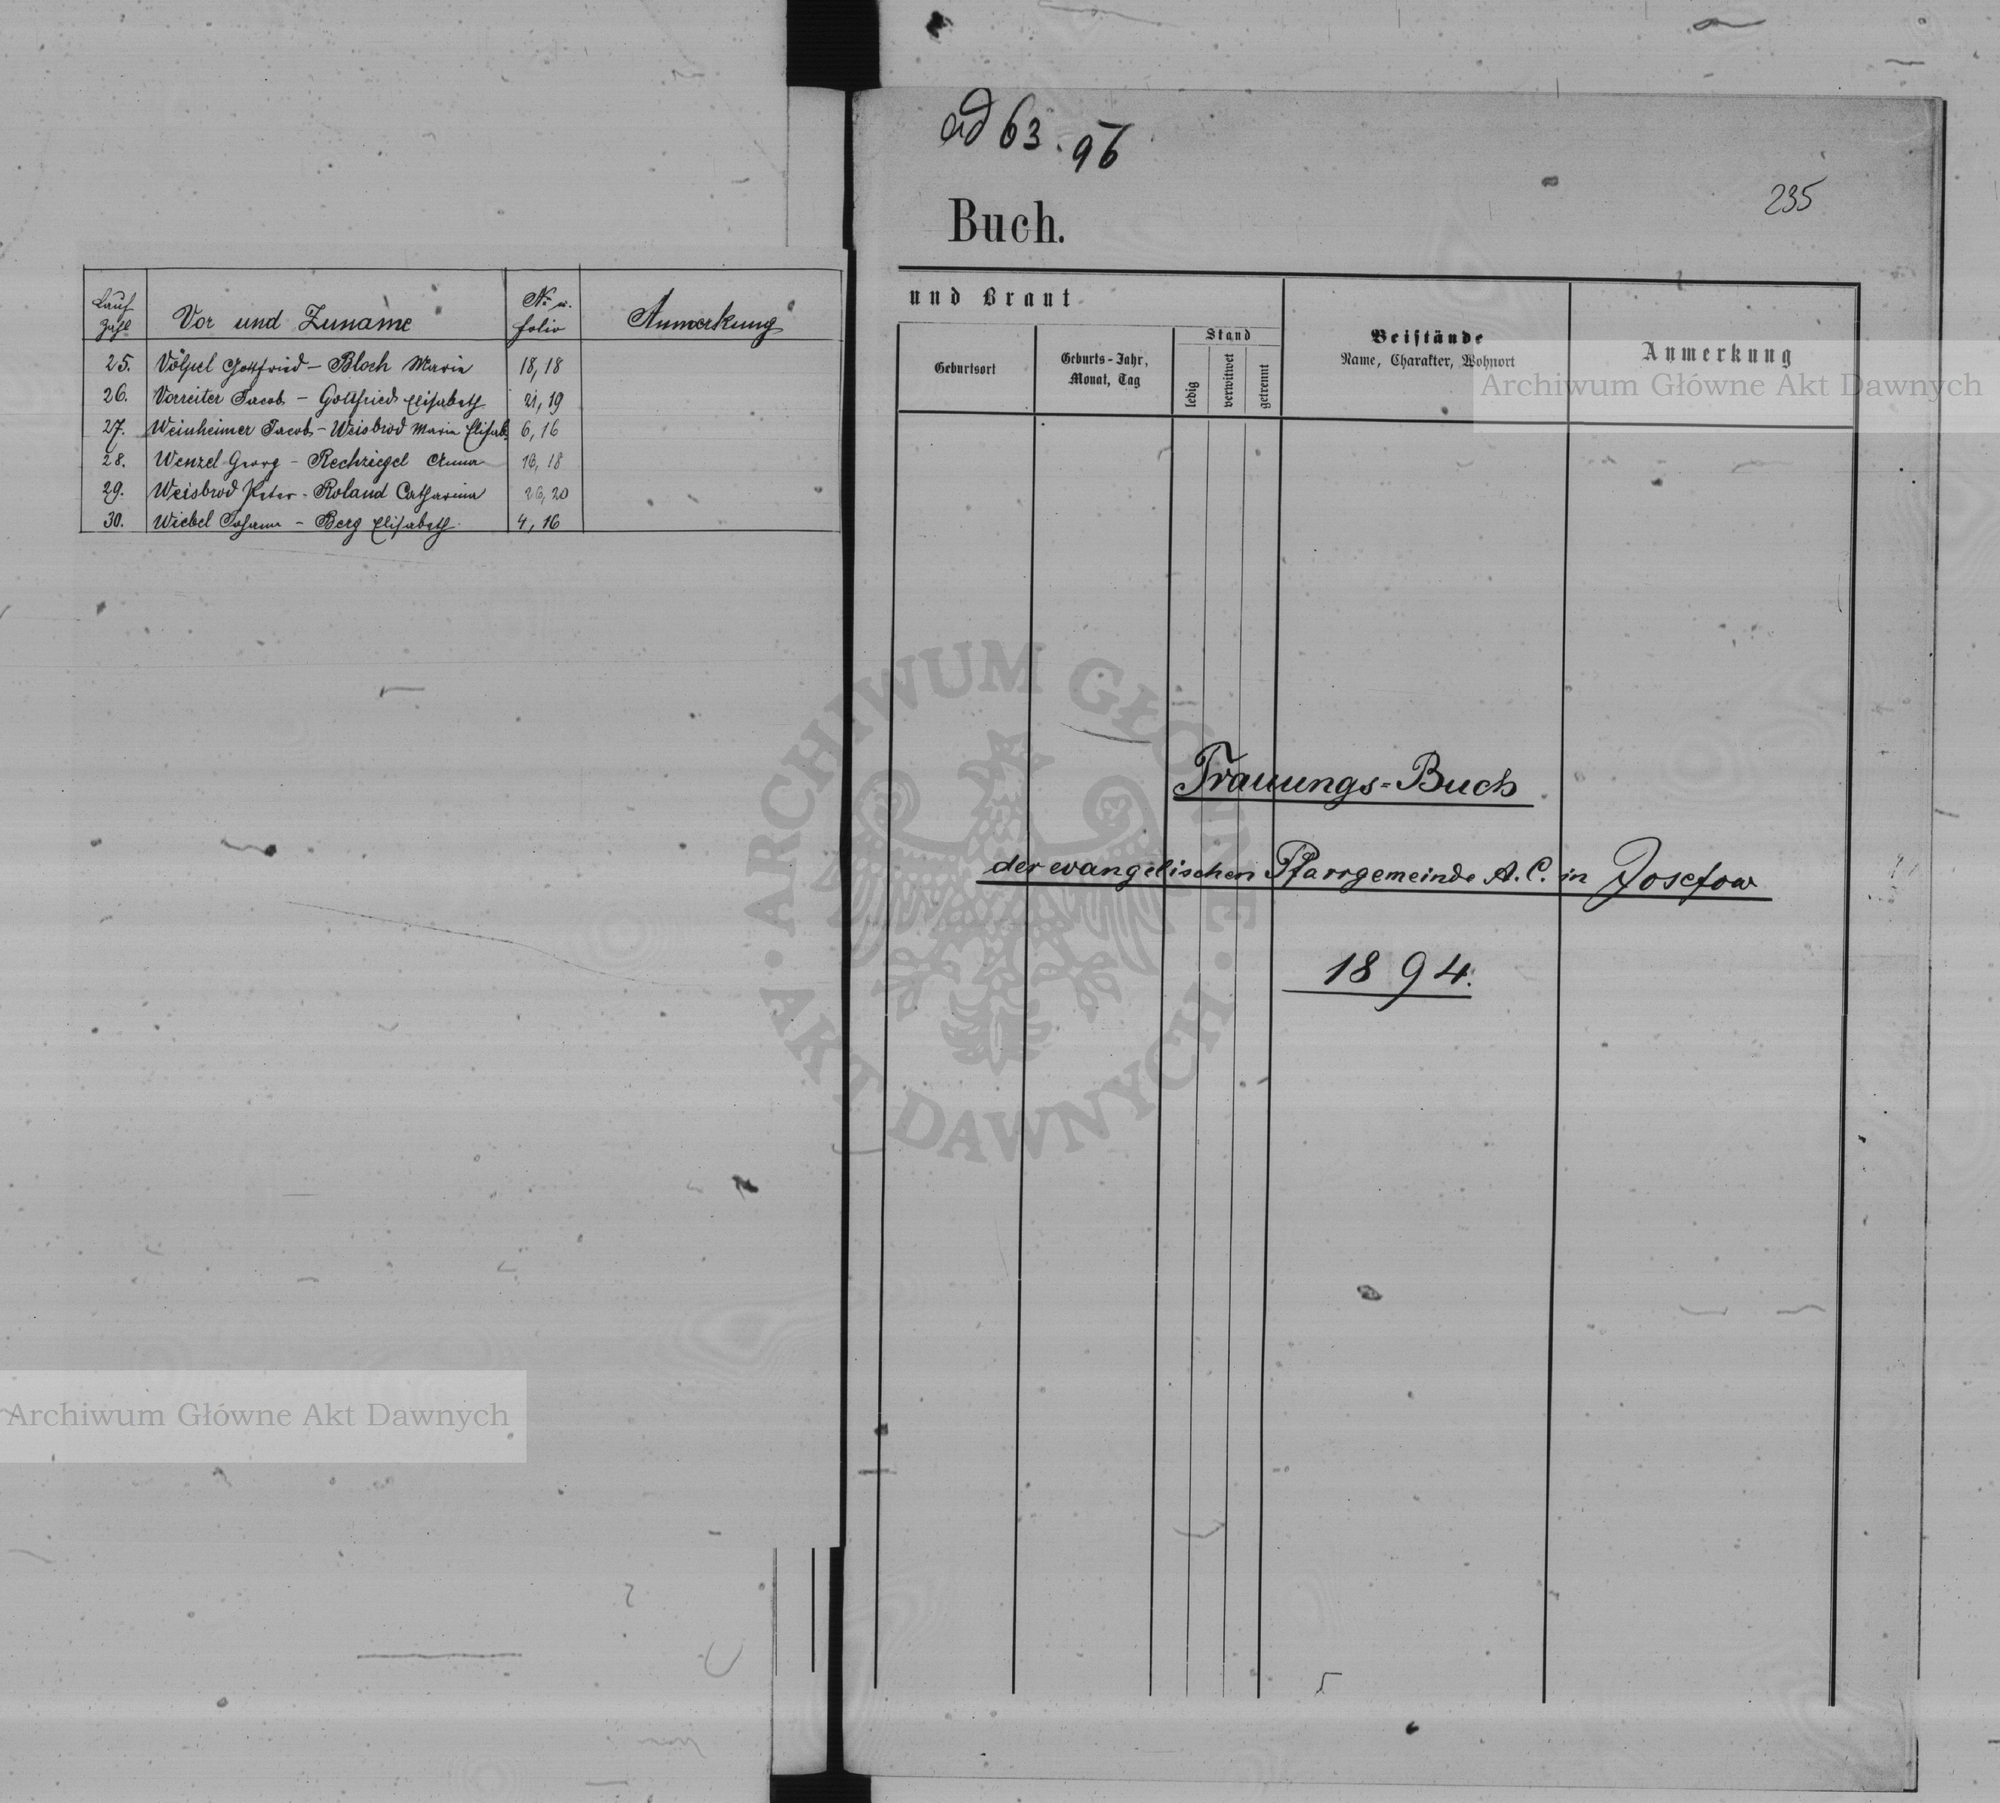 Lauf
Zahl
Vor und Zuname
No u.
folio
Anmerkung
25. Völpel Gottfried – Bloch Maria 18, 18
26. Vorreiter Jacob – Gottfried Elisabeth 21, 19
27. Weinheimer Jacob – Weisbrod Maria Elisab. 6, 16
28. Wenzel Georg – Rechziegel Anna 18
29. Weisbrod Peter – Roland Catharina 26, 20
30. Wiebel Johann – Berg Elisabeth. 4, 16
ad 63. 96
235
Buch.
und Braut
Geburtsort
Geburts-Jahr,
Monat, Tag
Stand
ledig
verwitwet
getrennt
Beistände
Name, Charakter, Wohnort
Anmerkung
Archiwum Główne Akt Dawnych
Trauungs-Buch
der evangelischen Pfarrgemeinde A. C. in Josefow
1894.
ARCHIWUM GŁÓWNE
AKT DAWNYCH
Archiwum Główne Akt Dawnych